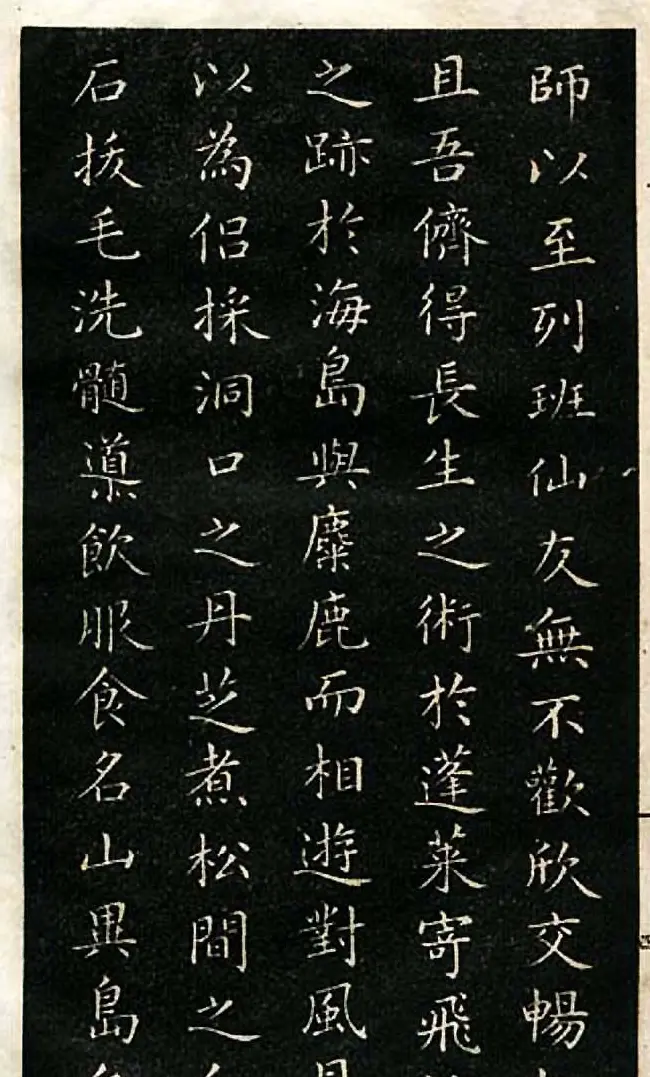 師以至列班仙友無不歡欣交暢
且吾儕得長生之術於蓬萊寄飛
之跡於海島與麋鹿而相遊對風
以為侶採洞口之丹芝煮松間之
石拔毛洗髓導飲服食名山異島